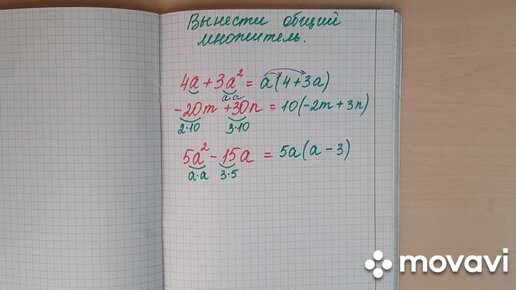 Вынести общий
множитель.
4a + 3a² = a(4+3a)
a·a
-20m +30n = 10(-2m + 3n)
2·10 3·10
5a² - 15a = 5a(a - 3)
a·a 3·5
movavi